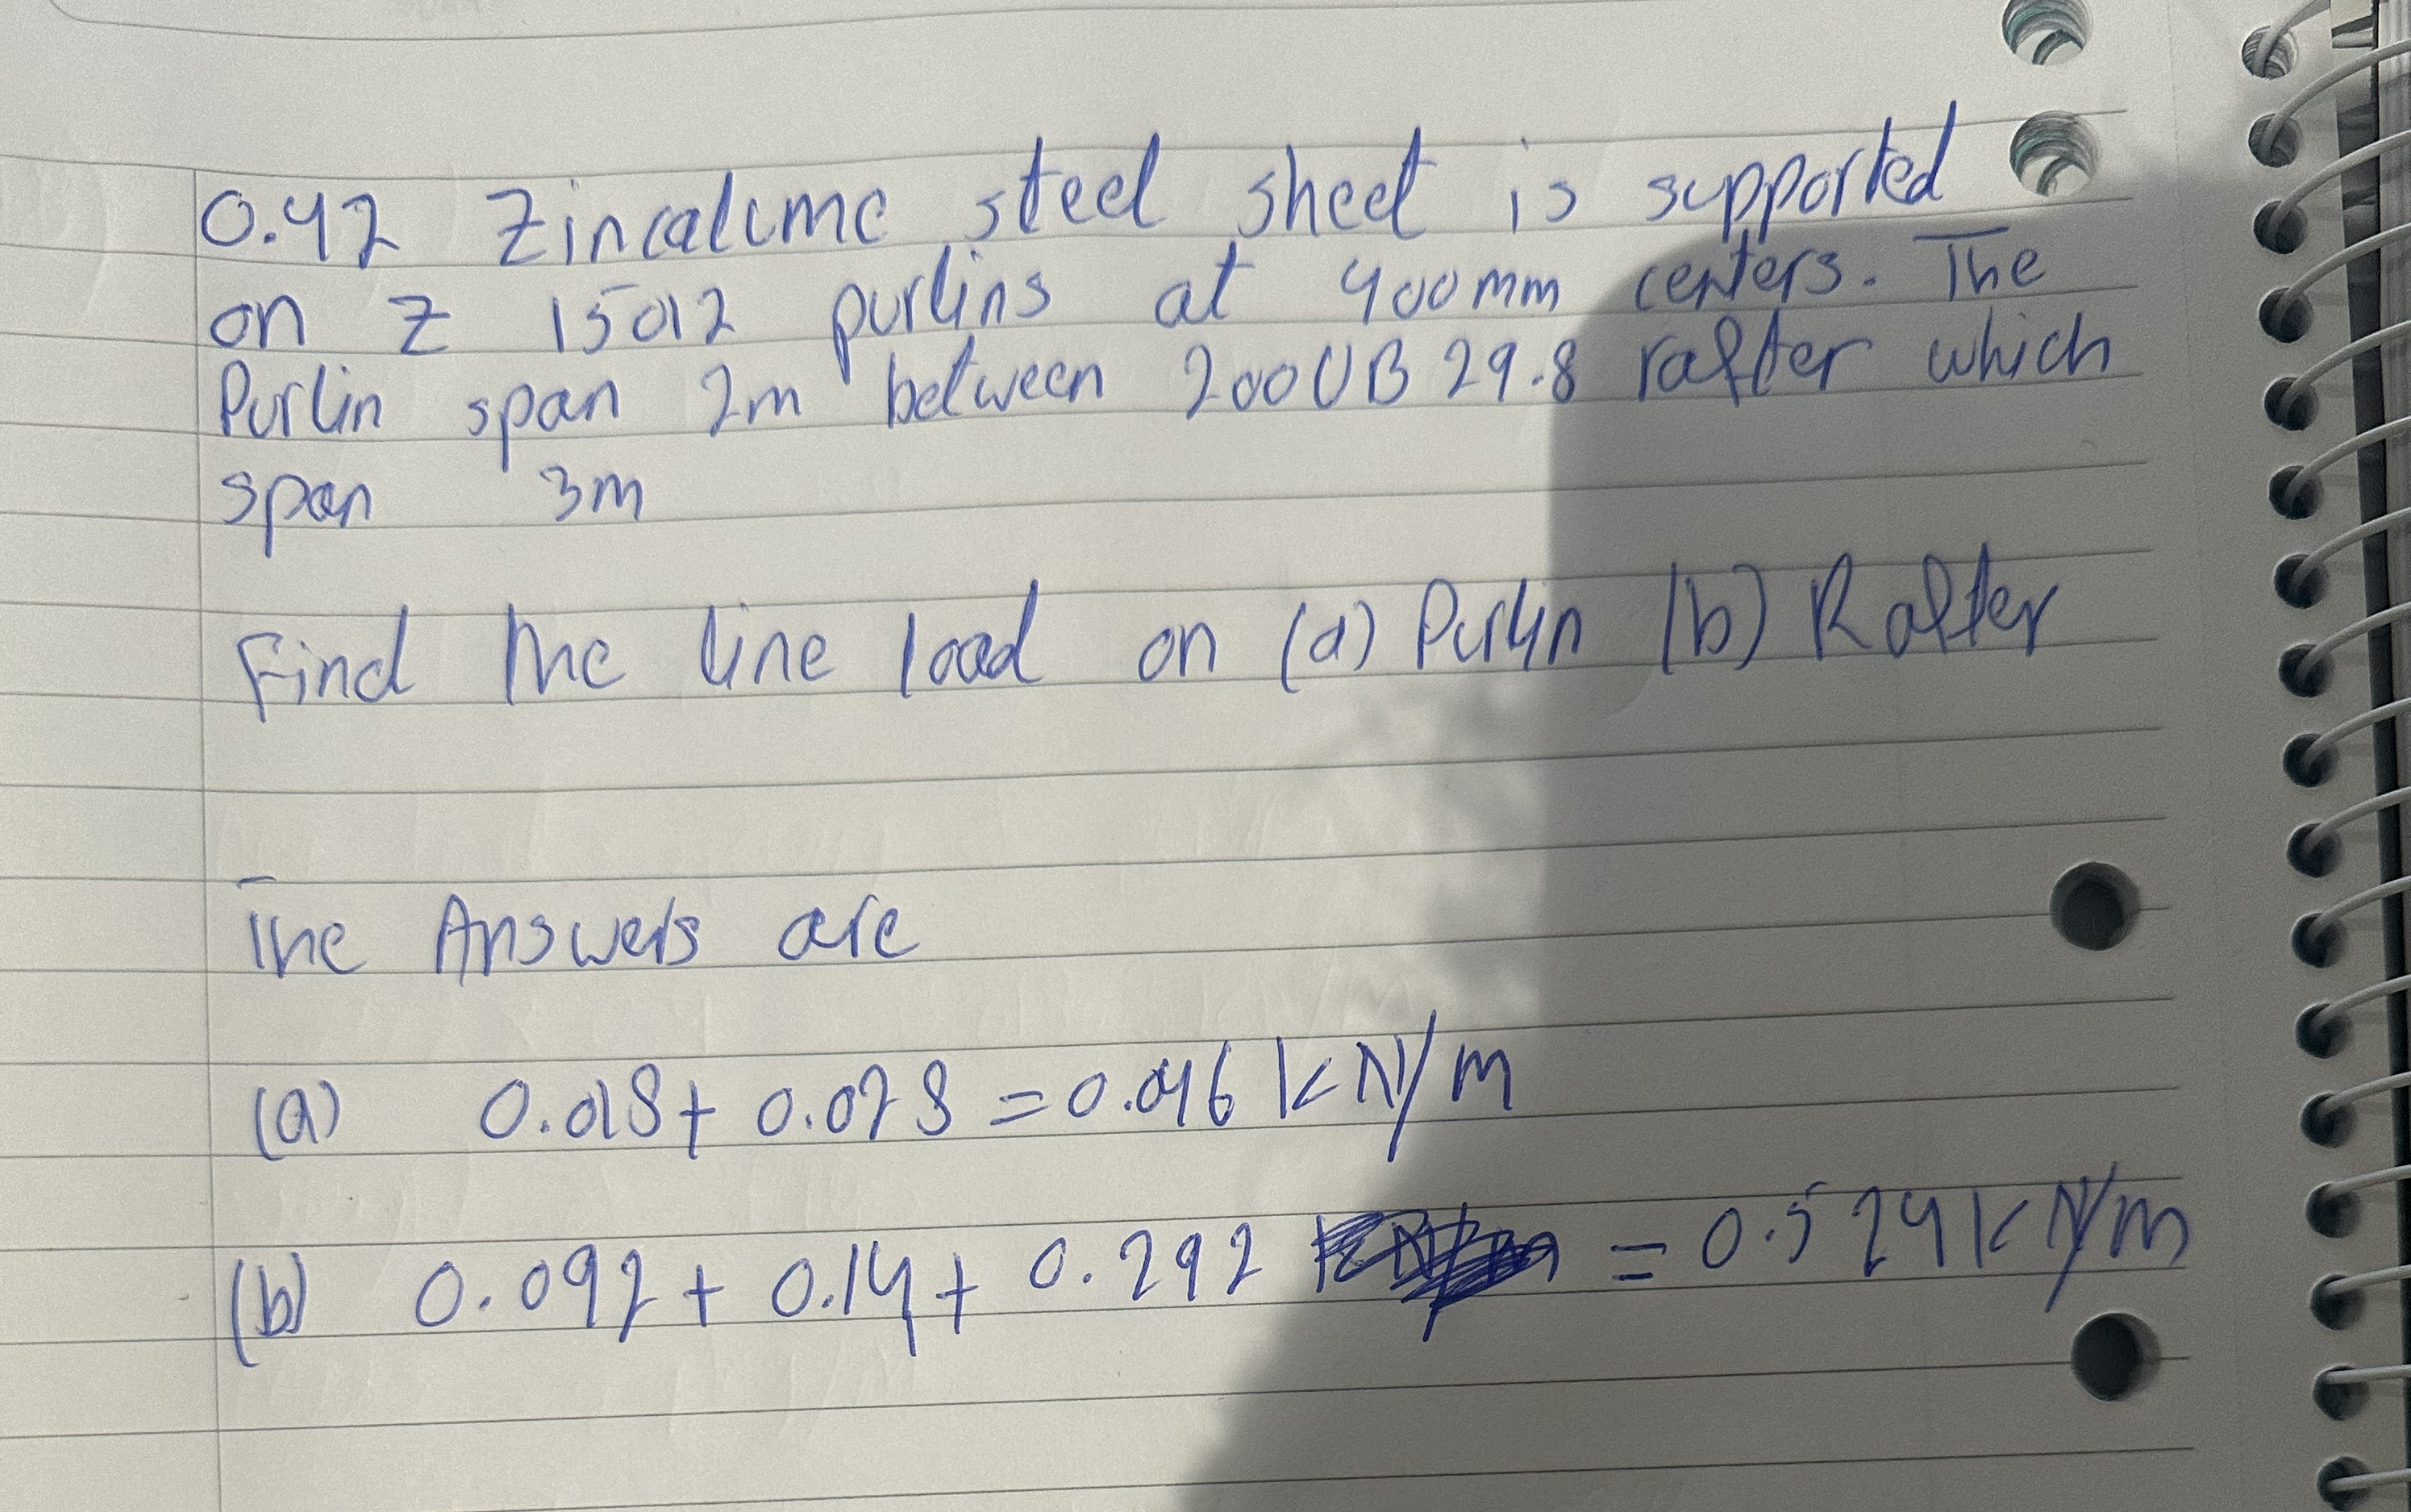 0.42 Zincalume steel sheet is supported
on Z 15012 purlins at 400mm centers. The
Purlin span 2m between 200UB 29.8 rafter which
span 3m
Find the line load on (a) Purlin (b) Rafter
The Answers are
(a) 0.018+ 0.028 = 0.046 kN/m
(b) 0.092 + 0.14 + 0.292 = 0.524 kN/m